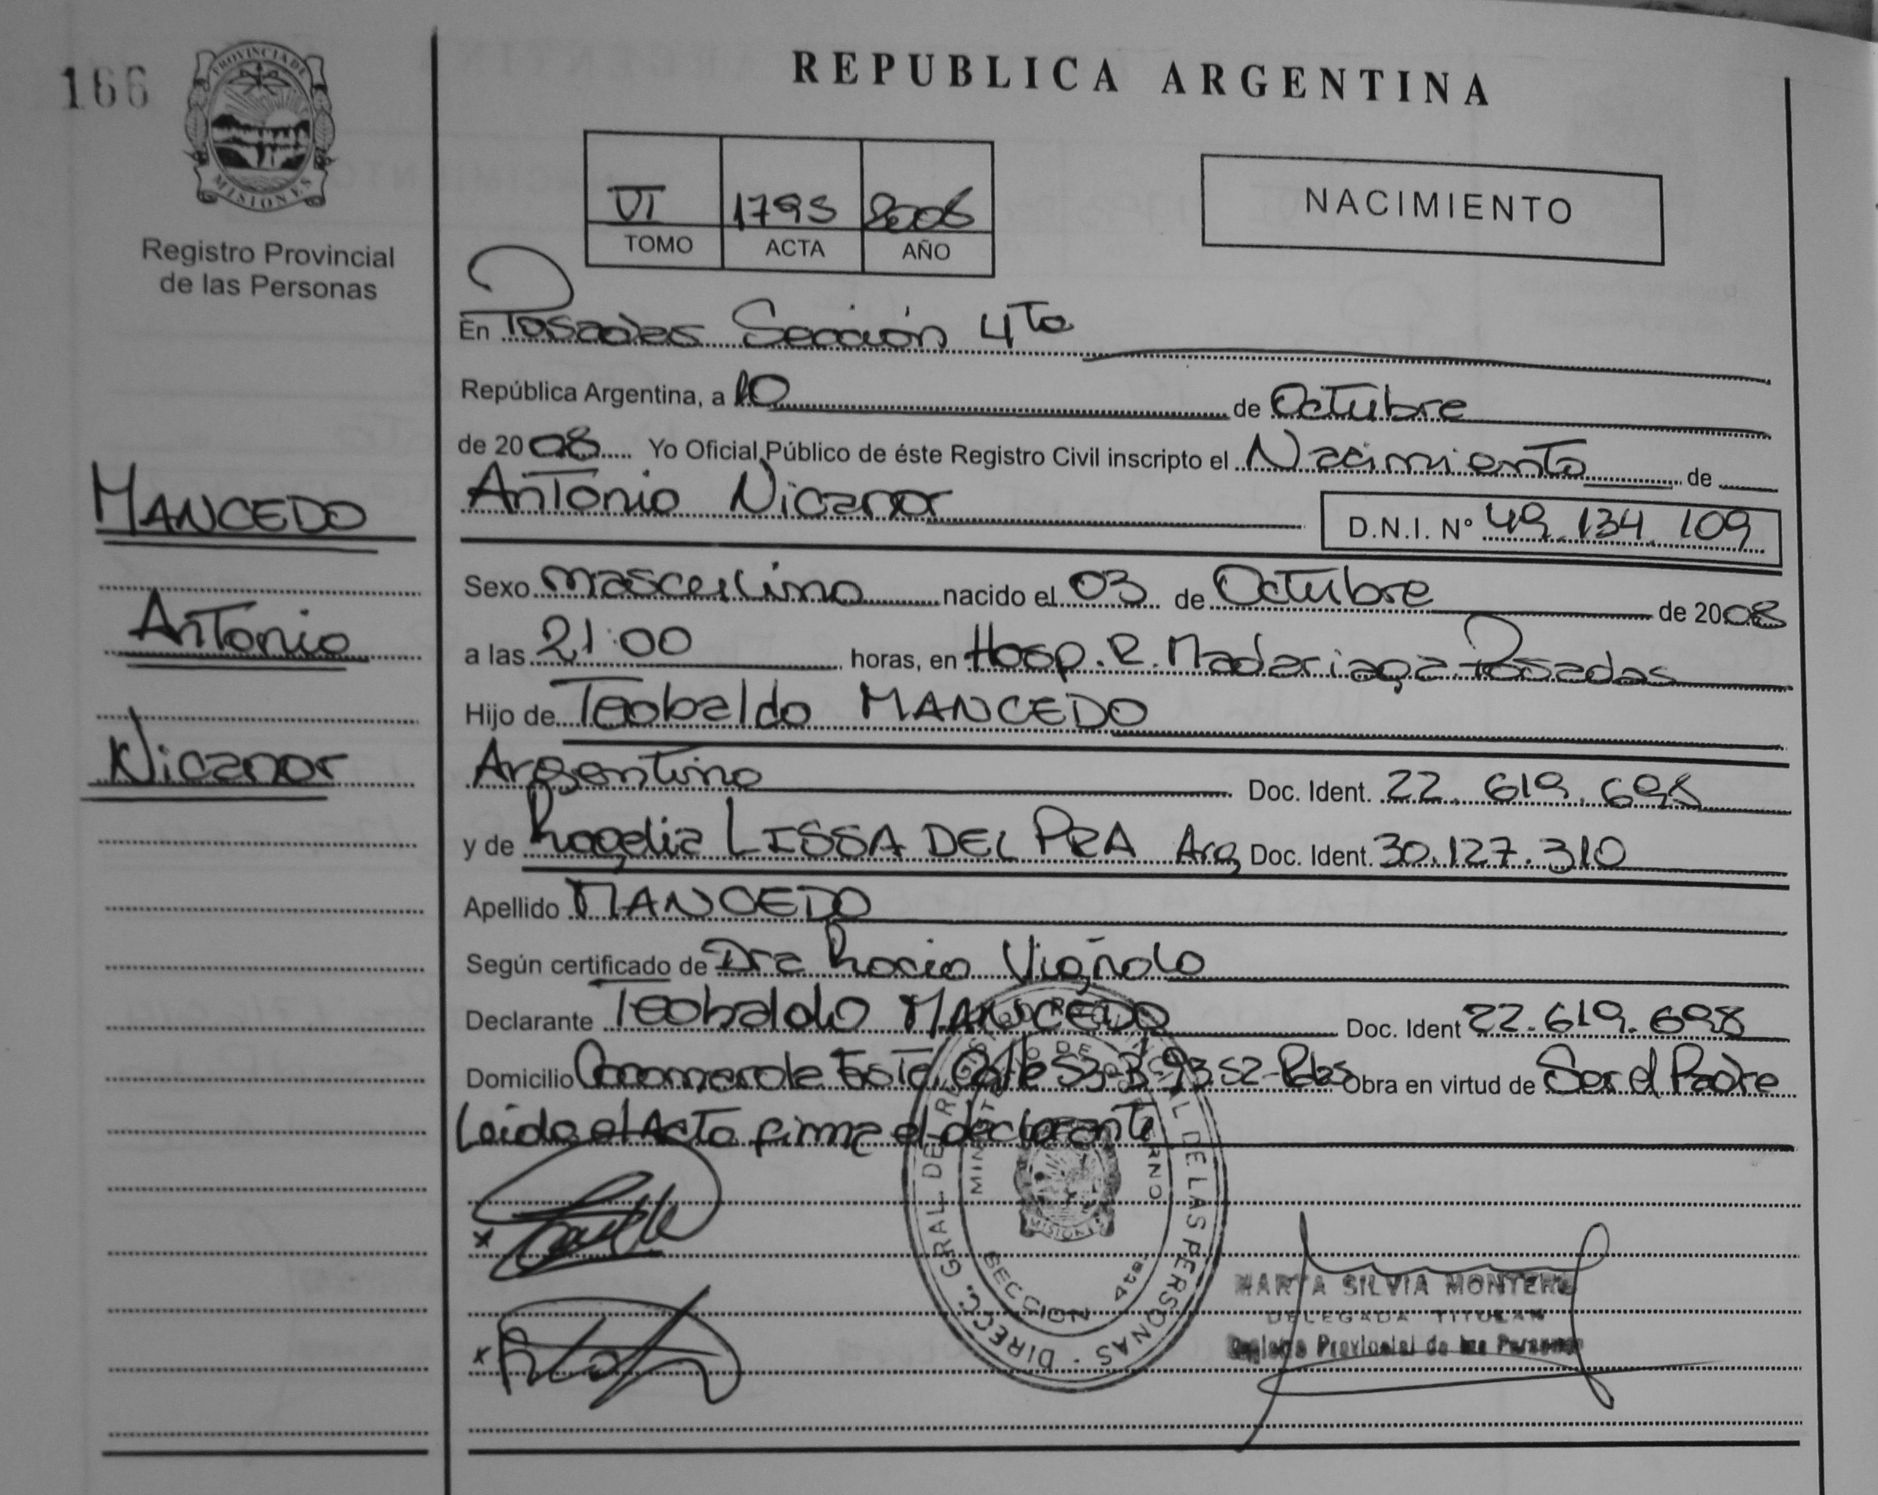 166
PROVINCIA DE
MISIONES
Registro Provincial
de las Personas
REPUBLICA ARGENTINA
VI 1793
TOMO ACTA AÑO
NACIMIENTO
En Posadas Sección 4ta
República Argentina, a 10 de Octubre
de 2008 Yo Oficial Público de éste Registro Civil inscripto el Nacimiento de
Antonio Nicanor D.N.I. N° 49.134.109
MANCEDO
Antonio
Nicanor
Sexo masculino nacido el 03 de Octubre de 2008
a las 21:00 horas, en Hosp. R. Madariaga-Posadas
Hijo de Teobaldo MANCEDO
Argentino Doc. Ident. 22.619.698
y de Rogelia LISSA DEL PRA Arg Doc. Ident. 30.127.310
Apellido MANCEDO
Según certificado de Dra Rocio Vigñolo
Declarante Teobaldo MANCEDO Doc. Ident 22.619.698
Domicilio Este Obra en virtud de Ser el Padre
Leida el Acta firma el declarante
DIRECC. GRAL. DE REGISTRO PROVINCIAL DE LAS PERSONAS
MINISTERIO DE GOBIERNO
MISIONES
SECCION 4ta.
MARTA SILVIA MONTERO
DELEGADA TITULAR
Registro Provincial de las Personas